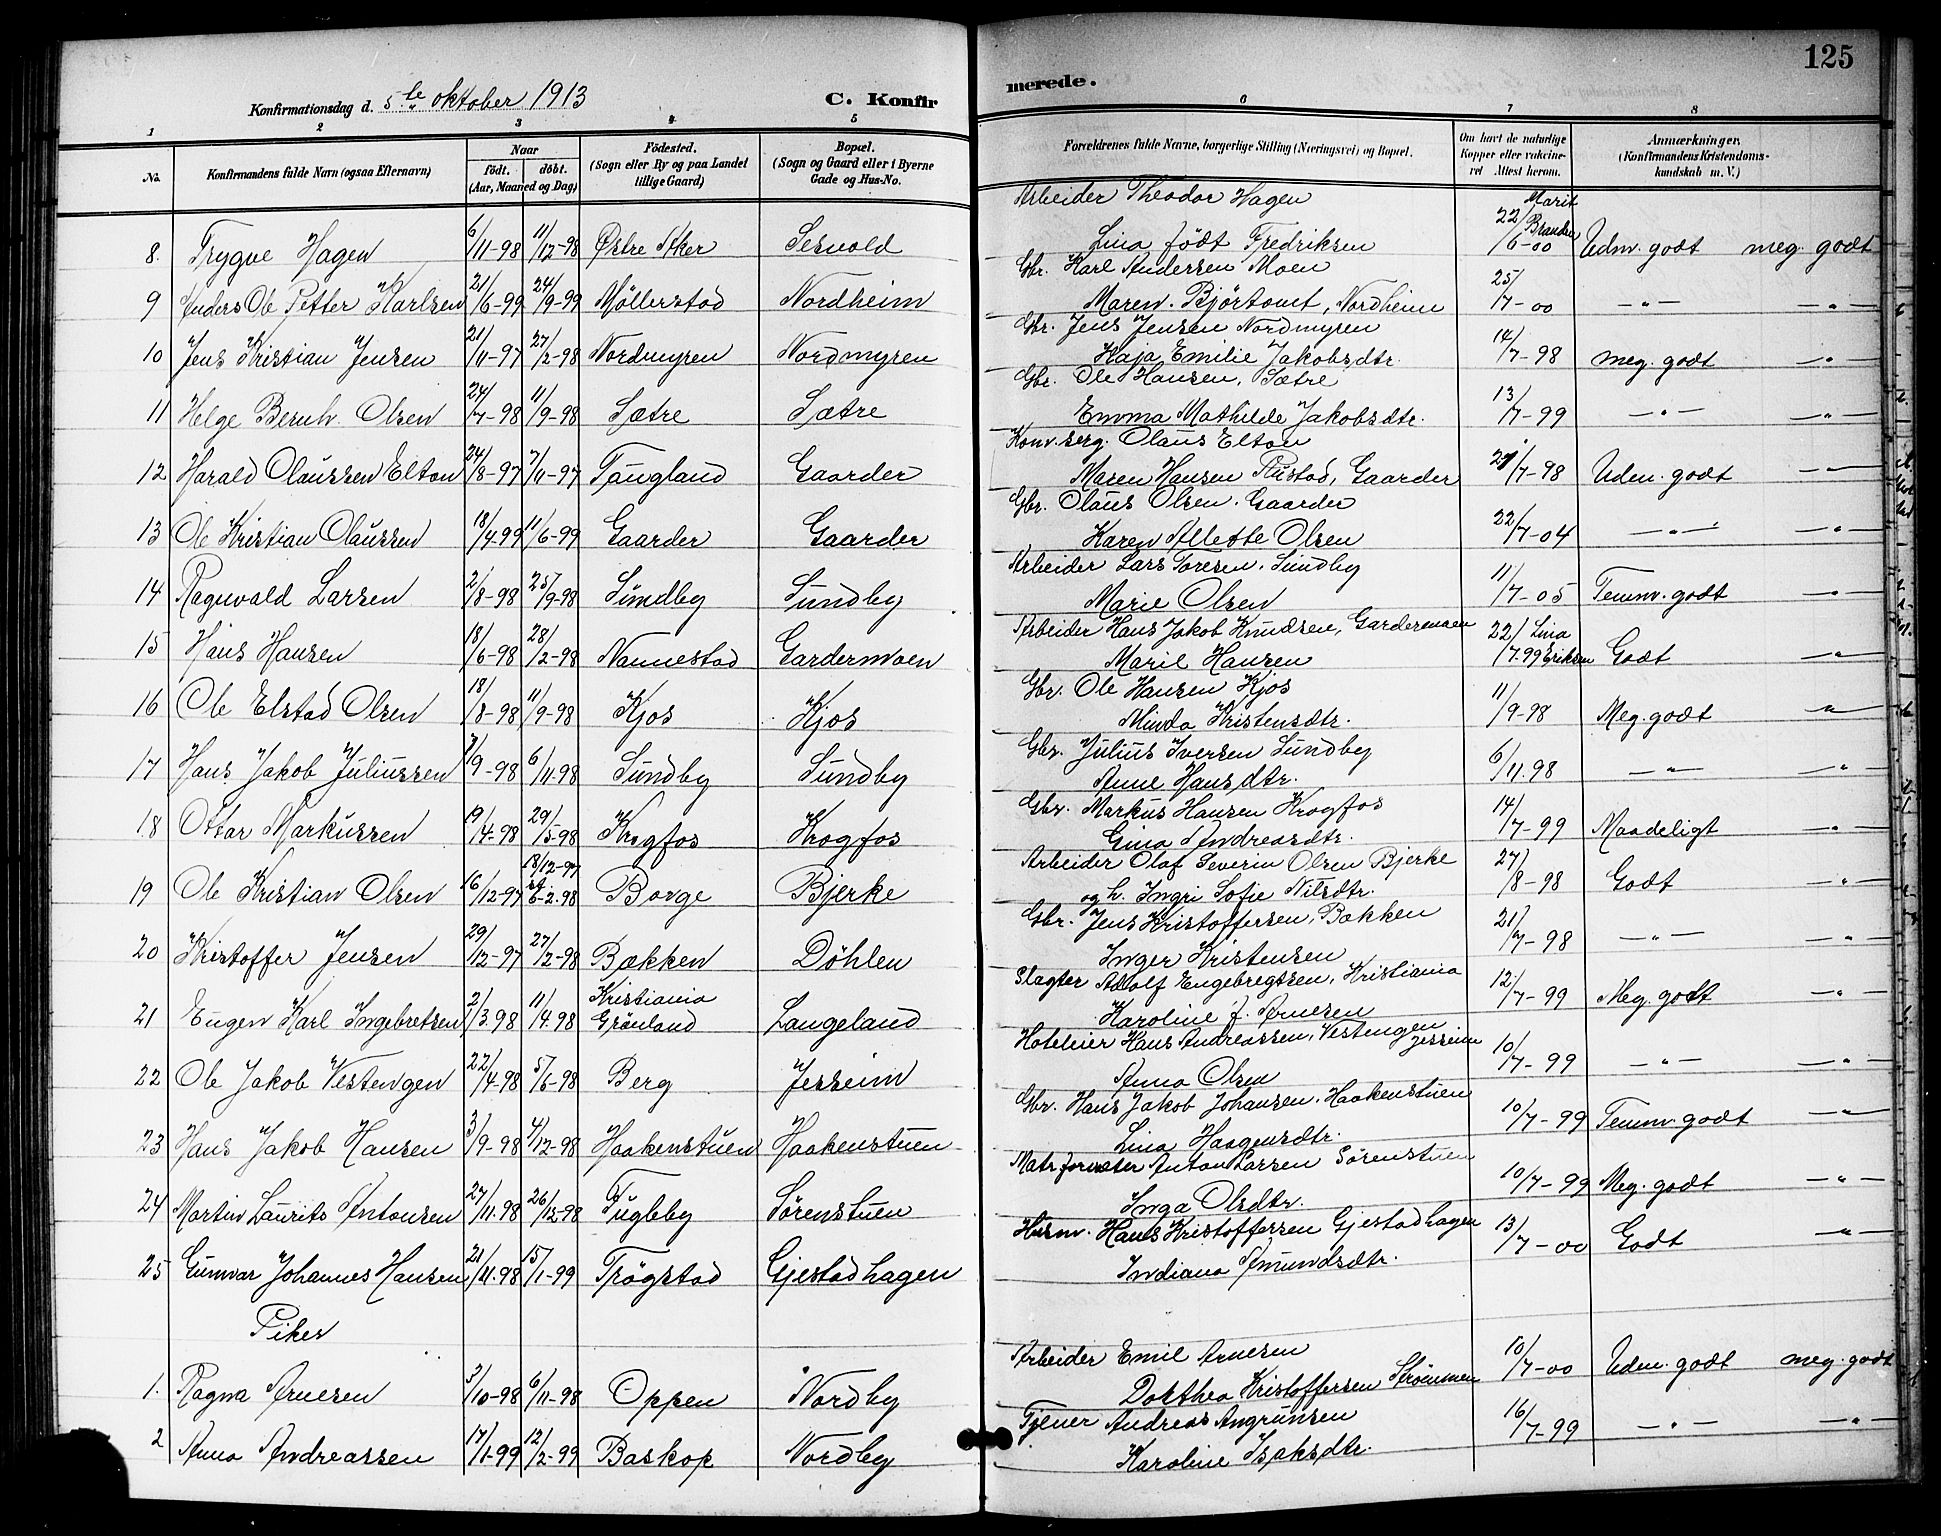 125
Konfirmationsdag d. 5te oktober 1913
C. Konfirmerede.
1 2 3 4 5 6 7 8
No. Konfirmandens fulde Navn (ogsaa Efternavn) Naar født. døbt. (Aar, Maaned og Dag) Fødested. (Sogn eller By og paa Landet tillige Gaard) Bopæl. (Sogn og Gaard eller i Byerne Gade og Hus-No. Forældrenes fulde Navne, borgerlige Stilling (Næringsvei) og Bopæl. Om havt de naturlige Kopper eller vakcineret Attest herom. Anmærkninger. (Konfirmandens Kristendomskundskab m. V.)
Arbeider Theodor Hagen
8. Trygve Hagen 6/11-98 11/12-98 Østre Aker Sesvold Lina født Fredriksen 22/6-00 Marit Udm. godt meg. godt
Gbr. Karl Andersen Moen
9 Anders Ole Petter Karlsen 21/6-99 24/9-99 Møllerstad Nordheim Maren Nordheim 25/7-00 -"- -"-
Gbr. Jens Jensen Nordmyren
10 Jens Kristian Jensen 21/11-97 27/2-98 Nordmyren Nordmyren Kaja Emilie Jakobsdtr. 14/7-98 meg. godt -"-
Gbr. Ole Hansen, Sætre
11 Helge Bernh. Olsen 24/7-98 11/9-98 Sætre Sætre Emma Mathilde Jakobsdtr. 13/7-99 -"- -"-
Olaus Elton
12 Harald Olaussen Elton 24/8-97 7/11-97 Taugland Gaarder Maren Hansen Gaarder 21/7-98 Udm. godt -"-
Gbr. Olaus Olsen. Gaarder
13 Ole Kristian Olaussen 18/4-99 11/6-99 Gaarder Gaarder Karen Allette Olsen 22/7-04 -"- -"-
Arbeider Lars Toresen, Sundby
14 Ragnvald Larsen 2/8-98 25/9-98 Sundby Sundby Marie Olsen 11/7-05 Temm. godt -"-
Arbeider Hans Jakob Knudsen, Gardermoen
15 Hans Hansen 18/6-98 28/2-98 Nannestad Gardermoen Marie Hansen 22/7.99 Lina Eriksen Godt -"-
Gbr. Ole Hansen Kjos
16 Ole Elstad Olsen 18/8-98 11/9-98 Kjos Kjos Minda Kristensdtr. 11/9-98 Meg. godt -"-
Gbr. Julius Iversen Sundby
17 Hans Jakob Juliussen 7/9-98 6/11.98 Sundby Sundby Anne Hansdtr. 6/11.98 -"- -"-
Gbr. Markus Hansen Krogfos
18 Ottar Markussen 19/4-98 29/5-98 Krogfos Krogfos Gina Andreasdtr. 14/7-99 Maadeligt -"-
Arbeider Olaf Severin Olsen Bjerke
19 Ole Kristian Olsen 16/12-97 18/12-97 6-2.98 Borge Bjerke og h. Ingri Sofie Nilsdtr. 27/8-98 Godt -"-
Gbr. Jens Kristoffersen, Bækken
20 Kristoffer Jensen 29/12-97 27/2-98 Bækken Døhlen Inger Kristensen 21/7-98 -"- -"-
Slagter Adolf Engebregtsen, Kristiania
21 Eugen Karl Ingebretsen 2/3.98 11/4.98 Kristiania Grønland Langeland Karoline f. Arnesen 12/7-99 Meg. godt -"-
Hoteleier Hans Andreassen, Vestengen Jessheim
22 Ole Jakob Vestengen 22/4-98 5/6-98 Berg Jessheim Anna Olsen 10/7-99 -"- -"-
Gbr. Hans Jakob Johansen. Haakenstuen
23 Hans Jakob Hansen 3/9-98 4/12-98 Haakenstuen Haakenstuen Lina Haagensdtr. 10/7-99 Temm. godt -"-
Matr.forvalter Anton Larsen Sørenstuen
24 Martin Laurits Antonsen 27/11.98 26/12-98 Fugleby Sørenstuen Inga Olsdtr. 10/7-99 Meg. godt -"-
Husm. Hans Kristoffersen Gjestadhagen
25 Gunvar Johannes Hansen 21/11.98 15/1-99 Trøgstad Gjestadhagen Indiana Amundsdtr. 13/7-00 Godt -"-
Piker
Arbeider Emil Arnesen
1. Ragna Arnesen 3/10-98 6/11-98 Oppen Nordby Dorthea Kristoffersen Strømmen 10/7-00 Udm. godt meg. godt
Tjener Andreas Angrunsen
2 Anna Andreassen 17/1-99 12/2-99 Baskop Nordby Karoline Isaksdtr. 16/7-99 -"- -"-